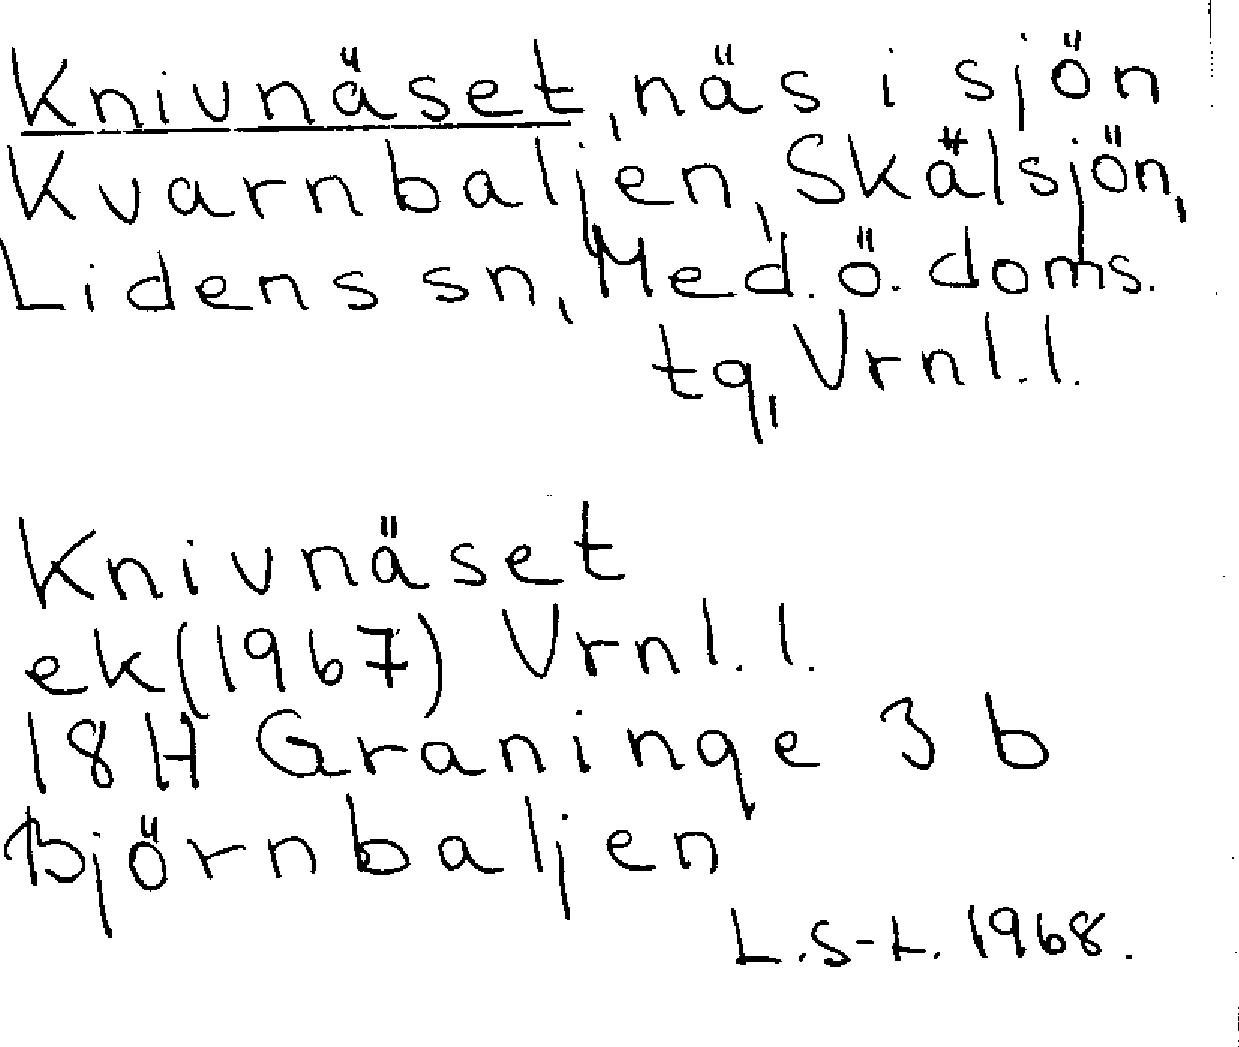 Knivnäset, näs i sjön
Kvarnbaljen, Skälsjön,
Lidens sn, Med. ö. doms.
tg, Vrnl.l.
Knivnäset
ek (1967) Vrnl.l.
18H Graninge 3 b
Björnbaljen
L.S-L. 1968.